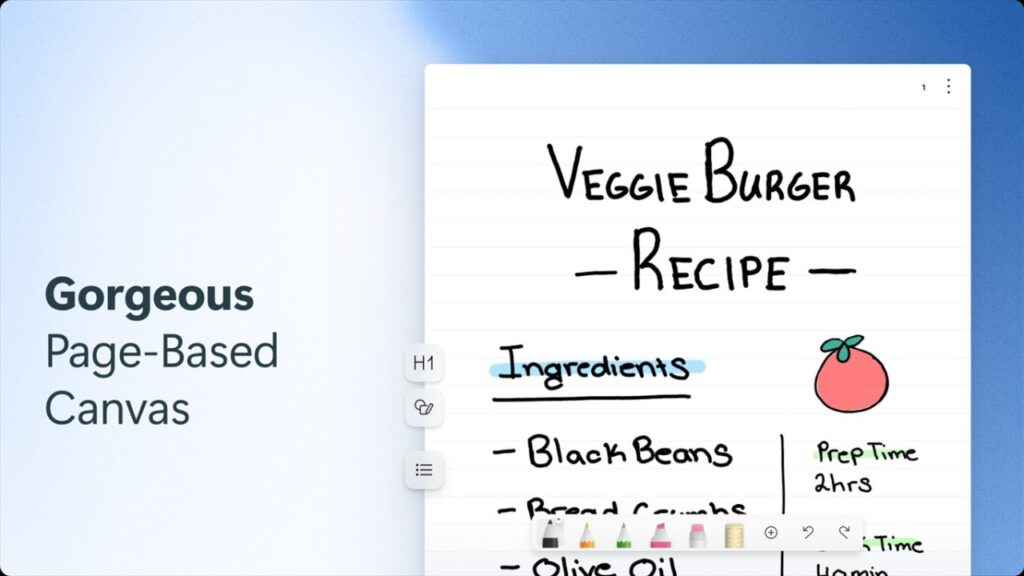 Gorgeous
Page-Based
Canvas
1
VEGGIE BURGER
— RECIPE —
H1
Ingredients
- Black Beans
Prep Time
2hrs
- Bread Crumbs
Time
- Olive Oil
40min